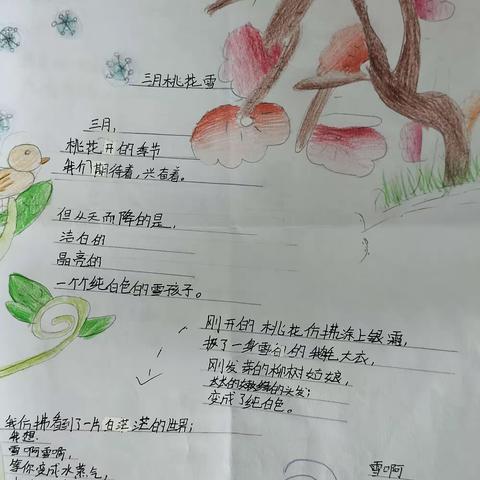 三月桃花雪
三月,
桃花开的季节
我们期待着,兴奋着。
但从天而降的是,
洁白的
晶亮的
一个个纯白色的雪孩子。
刚开的桃花仿拂涂上银霜,
披了一身雪白的大衣,
刚发芽的柳树姑娘,
的头发;
变成了纯白色。
我们拂看到了一片白茫茫的世界;
我想.
雪啊雪啊,
等你变成水蒸气,
雪啊